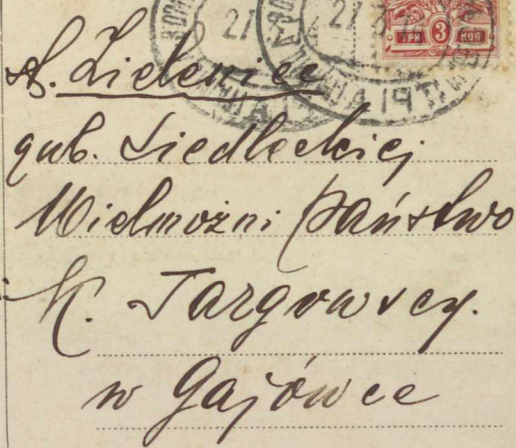 27 27
ТРИ 3 КОП
st. Zieleniec
gub. Siedleckiej
Wielmożni Państwo
K. Targowscy.
w Gajówce